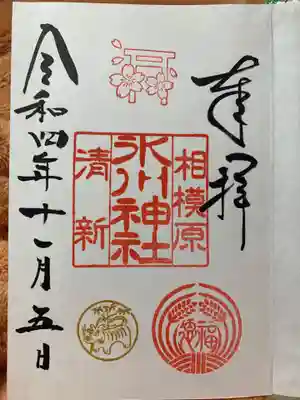 奉拝
相模原
氷川神社
清新
令和四年十一月五日
福